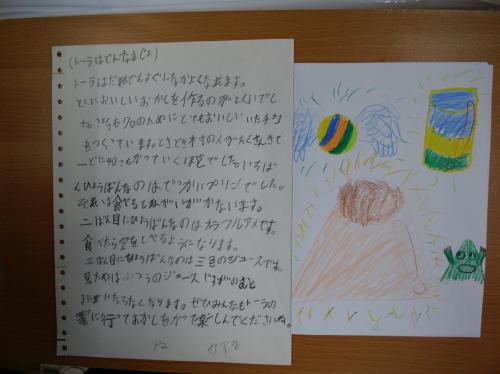 (トーラはどんなまじょ)
トーラはだれでもすぐになかよくなれます。
とくにおいしいおかしを作るのがとくいでし
た。いつもクロのためにとてもおいしいいたチョコ
をつくっています。ときどき村の人がたくさんきて
一どに40こもかっていくほどでした。いちば
んひょうばんなのはでっかいプリンでした。
それは食べるとねがいがかないます。
二ばん目にひょうばんなのはカラフルアメです。
食べたら空をとべるようになります。
三ばん目にひょうばんなのは三色のジュースです。
見ためはふつうのジュース
ぜひみんなもトーラの
家に行っておかしをかって楽しんでくださいね。